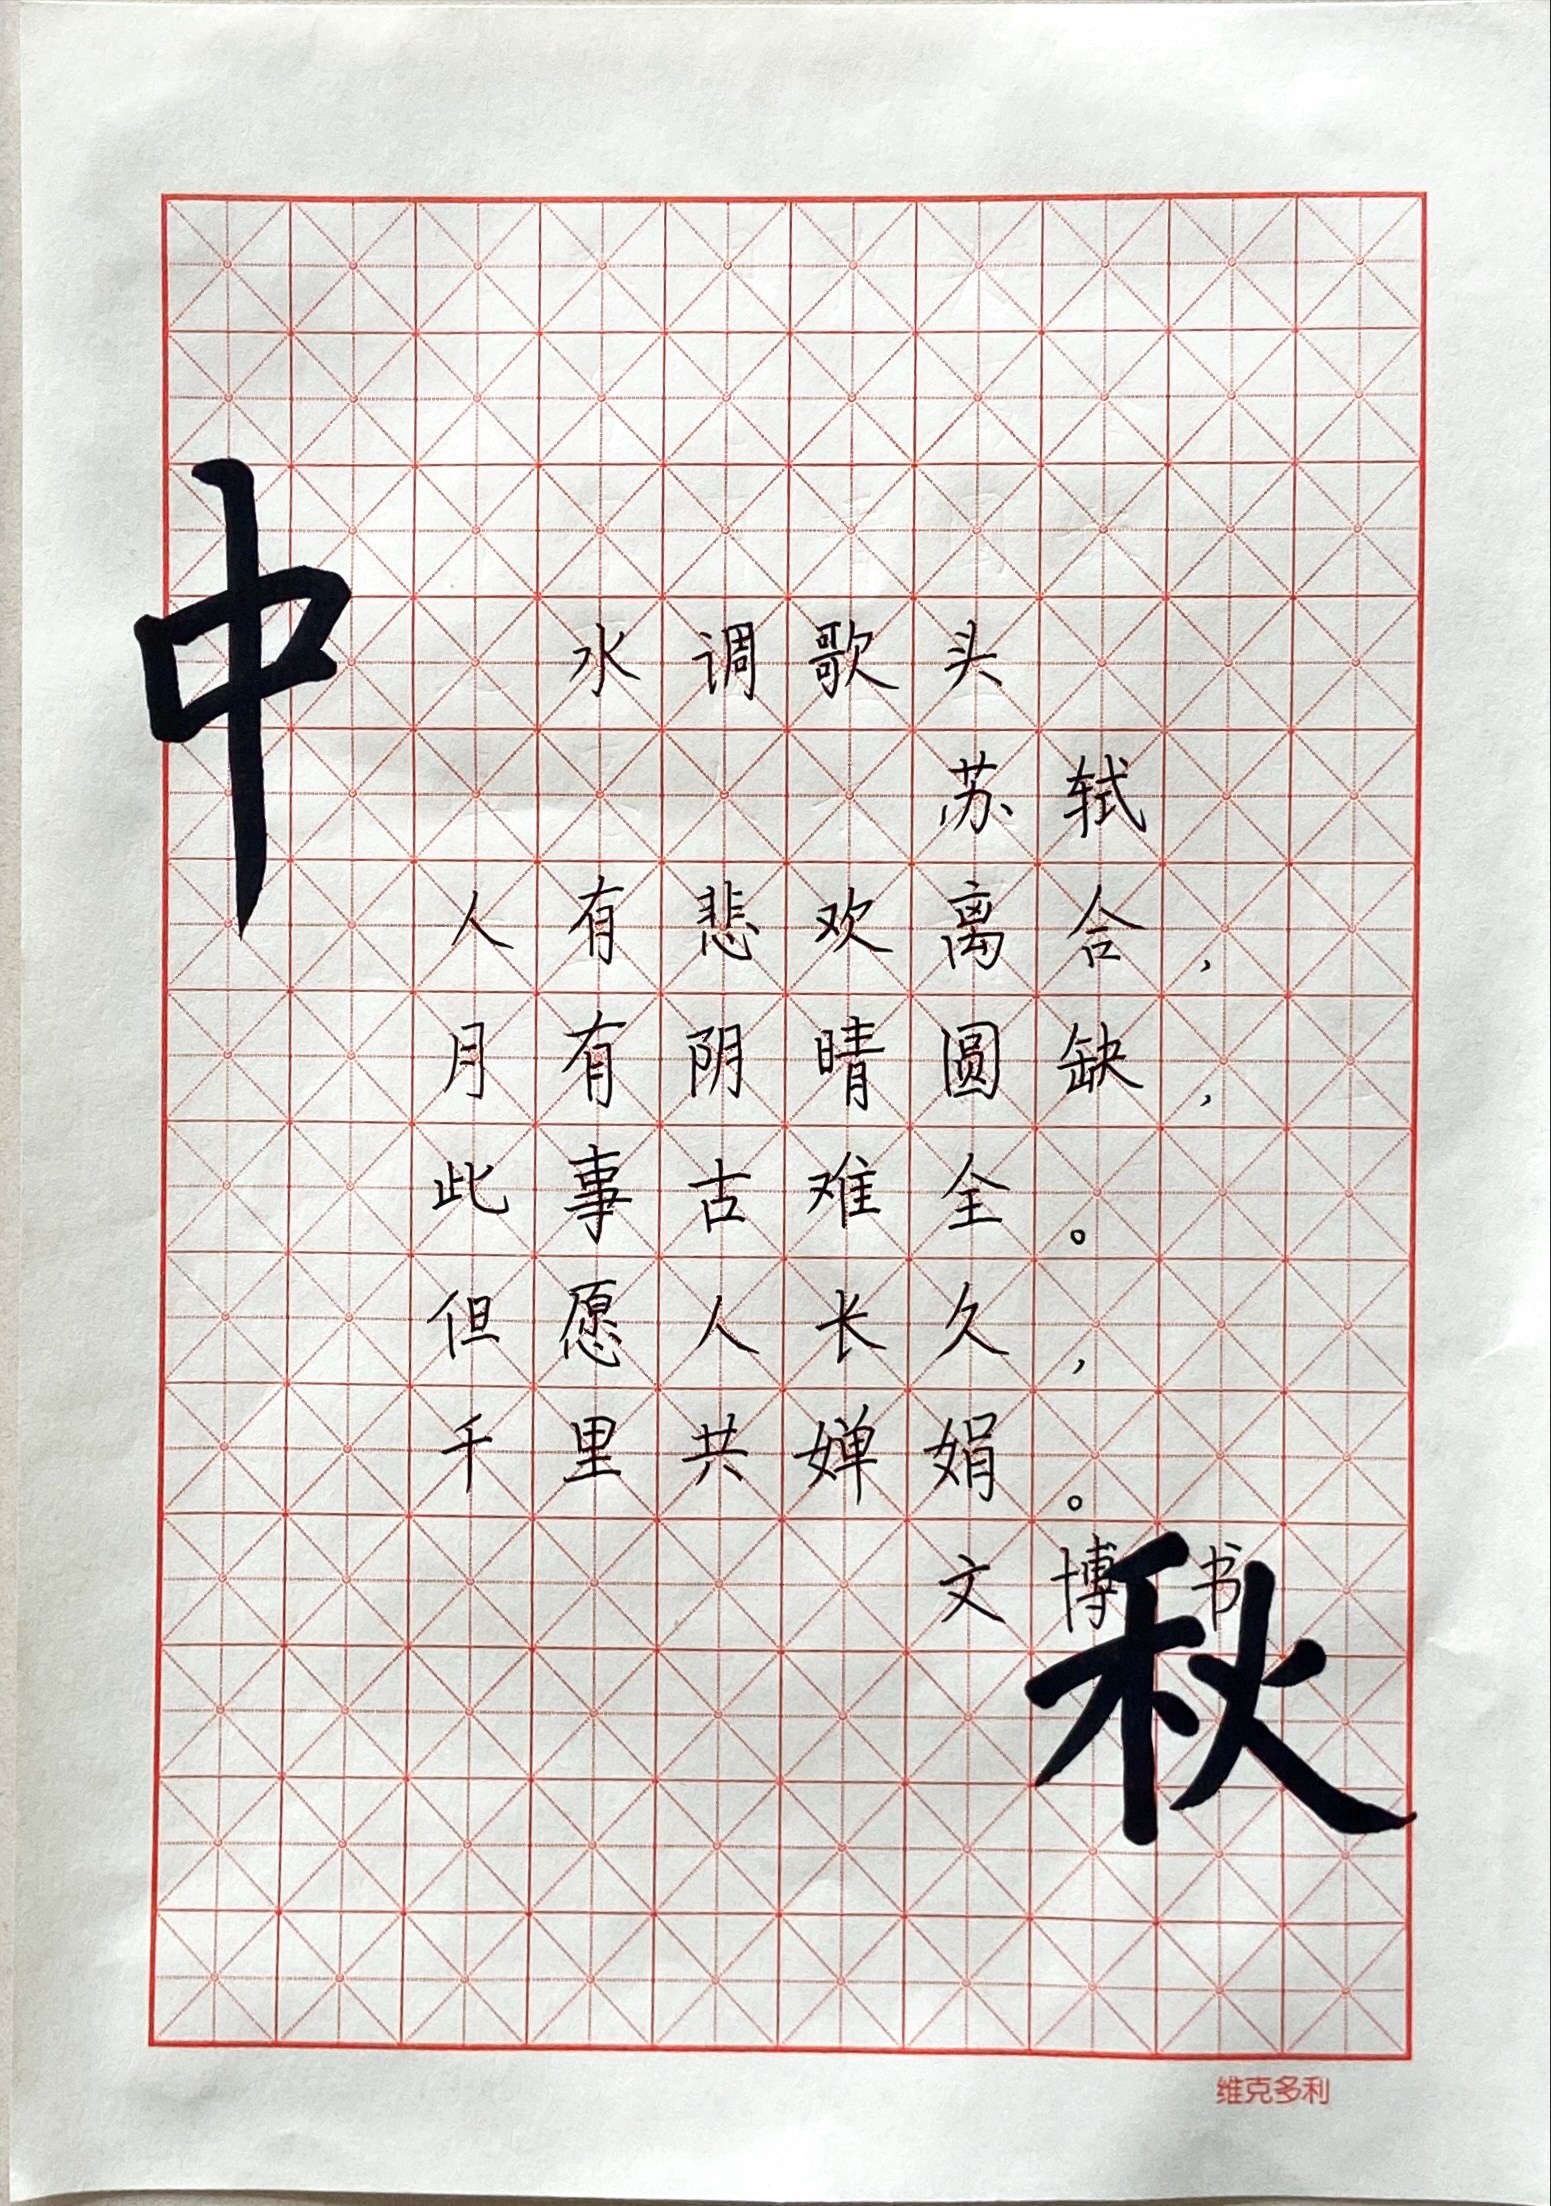 中
水调歌头
苏轼
人有悲欢离合，
月有阴晴圆缺，
此事古难全。
但愿人长久，
千里共婵娟。
文博书
秋
维克多利